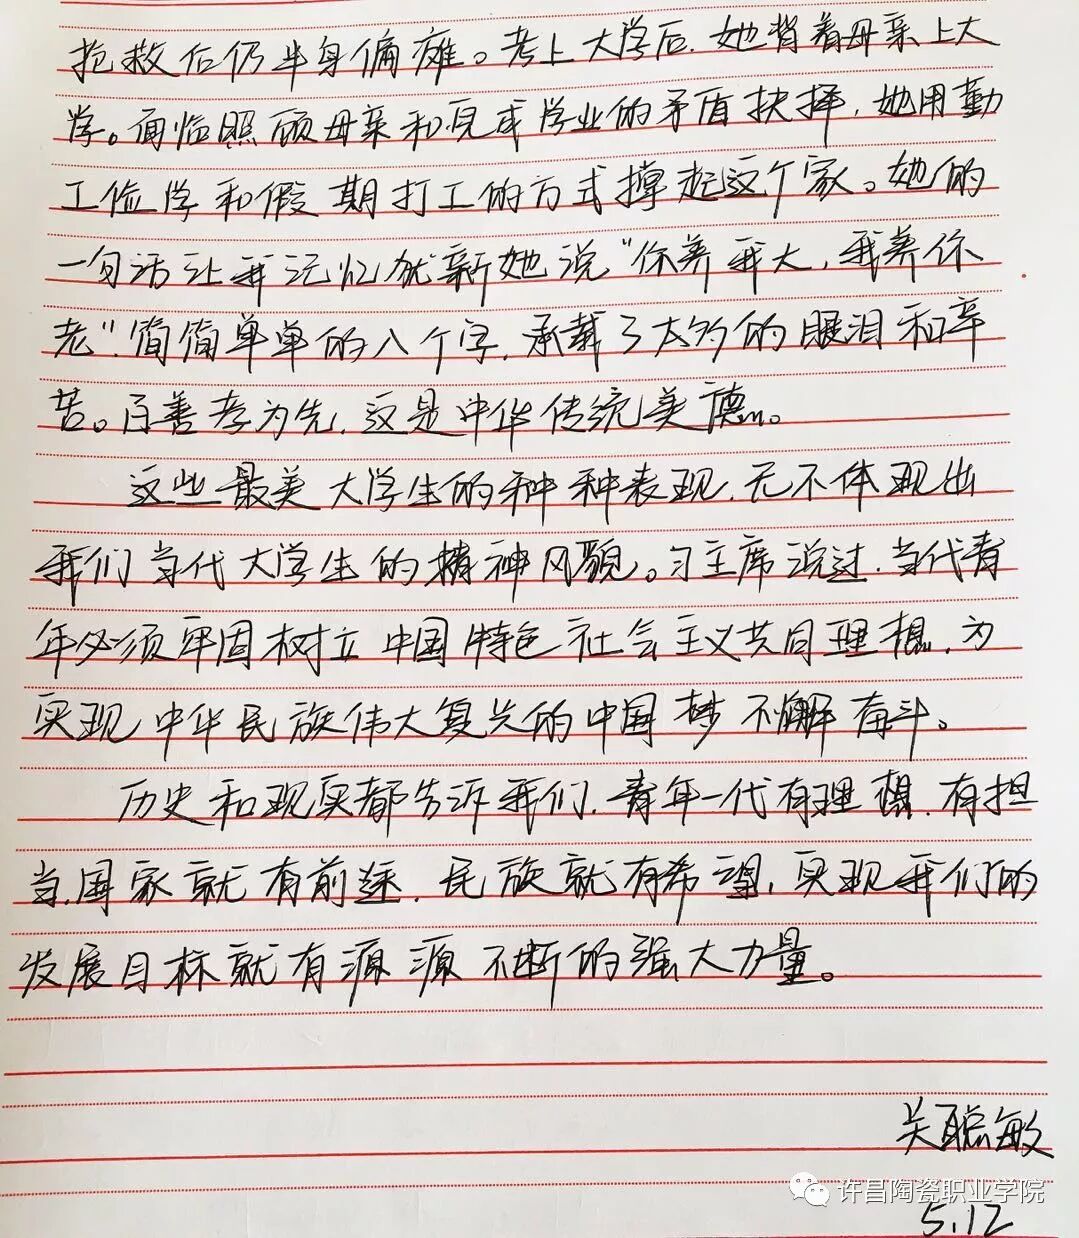 抢救后仍半身偏瘫。考上大学后，她背着母亲上大
学。面临照顾母亲和完成学业的矛盾抉择，她用勤
工俭学和假期打工的方式撑起这个家。她的
一句话让我记忆犹新她说“你养我大，我养你
老”，简简单单的八个字，承载了太多的眼泪和辛
苦。百善孝为先，这是中华传统美德。
这些最美大学生的种种表现，无不体现出
我们当代大学生的精神风貌。习主席说过，当代青
年必须牢固树立中国特色社会主义共同理想，为
实现中华民族伟大复兴的中国梦不懈奋斗。
历史和现实都告诉我们，青年一代有理想，有担
当，国家就有前途，民族就有希望，实现我们的
发展目标就有源源不断的强大力量。
关聪敏
许昌陶瓷职业学院
5.12